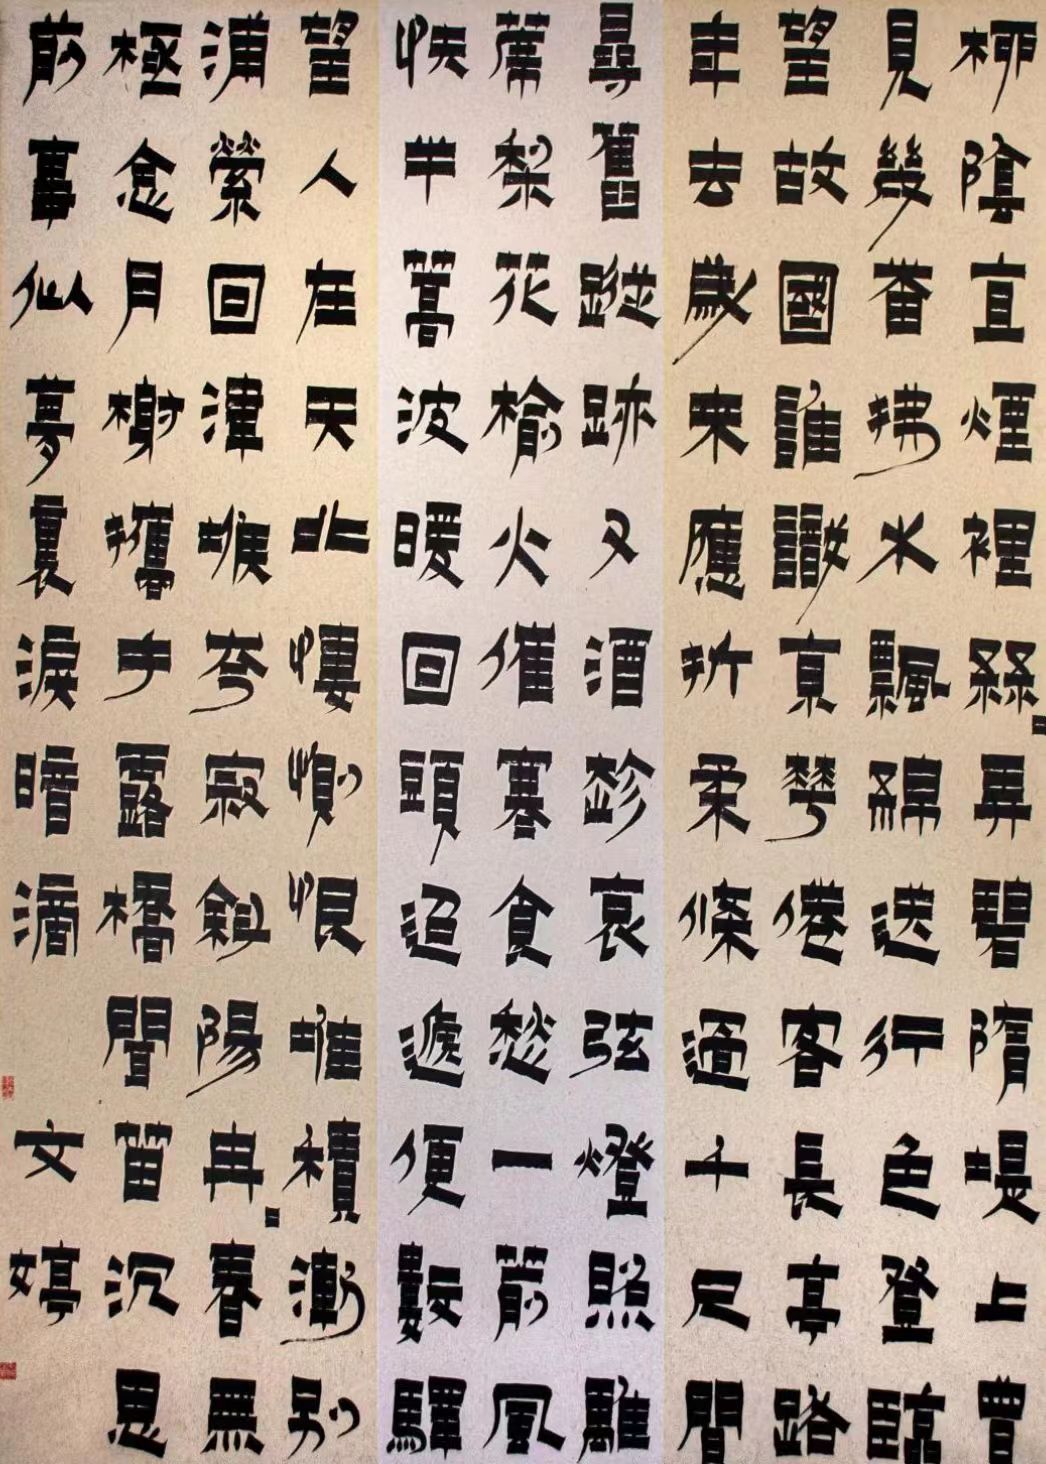 柳陰直煙裡絲〻弄碧隋堤上曾
見幾番拂水飄綿送行色登臨
望故國誰識京華倦客長亭路
年去歲來應折柔條過千尺閒
尋舊蹤跡又酒趁哀弦燈照離
蓆梨花榆火催寒食愁一箭風
快半篙波暖回頭迢遞便數驛
望人在天北悽惻恨堆積漸別
浦縈回津堠岑寂斜陽冉〻春無
極念月榭攜手露橋聞笛沉思
前事似夢裏淚暗滴 文婷